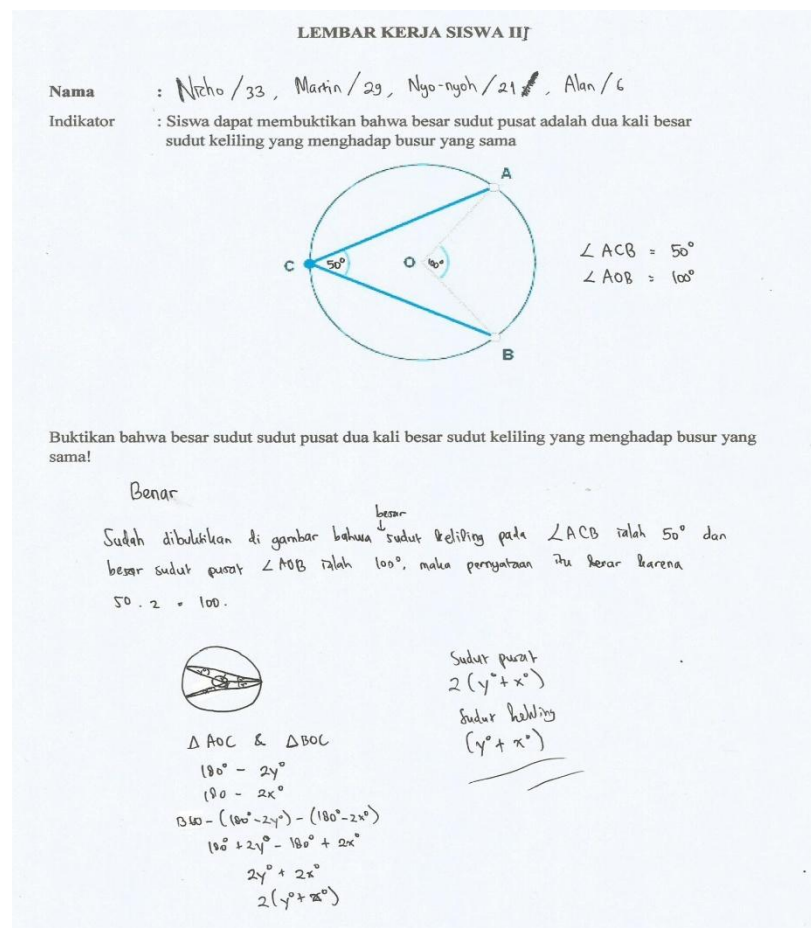 LEMBAR KERJA SISWA III
Nama : Nicho / 33, Martin / 29, Nyo-nyoh / 21, Alan / 6
Indikator : Siswa dapat membuktikan bahwa besar sudut pusat adalah dua kali besar
sudut keliling yang menghadap busur yang sama
A
C 50° O 100°
B
∠ ACB = 50°
∠ AOB = 100°
Buktikan bahwa besar sudut sudut pusat dua kali besar sudut keliling yang menghadap busur yang
sama!
Benar
besar
Sudah dibuktikan di gambar bahwa ↓ sudut keliling pada ∠ACB ialah 50° dan
besar sudut pusat ∠AOB ialah 100°, maka pernyataan itu benar karena
50 . 2 = 100.
Δ AOC & Δ BOC
180° - 2y°
180 - 2x°
360 - (180°-2y°) - (180°-2x°)
180° + 2y° - 180° + 2x°
2y° + 2x°
2(y° + x°)
Sudut pusat
2 (y° + x°)
Sudut keliling
(y° + x°)